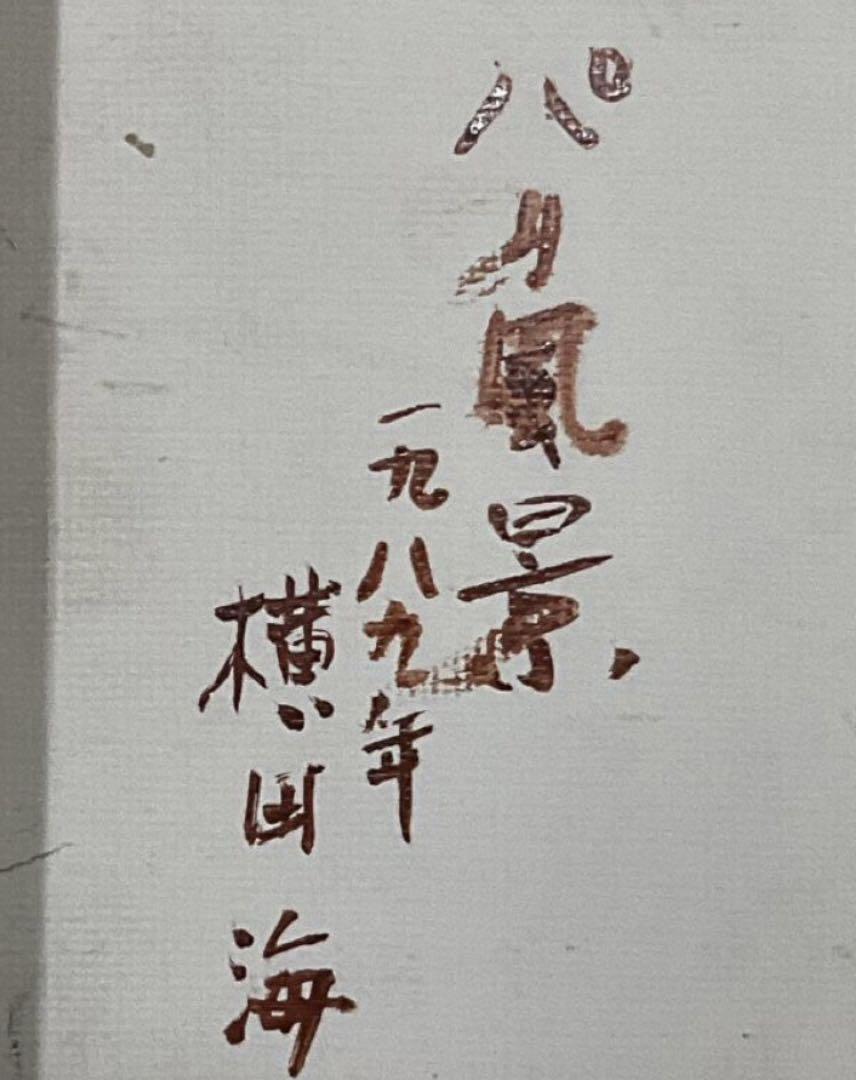 パリ風景
一九八九年
横田海